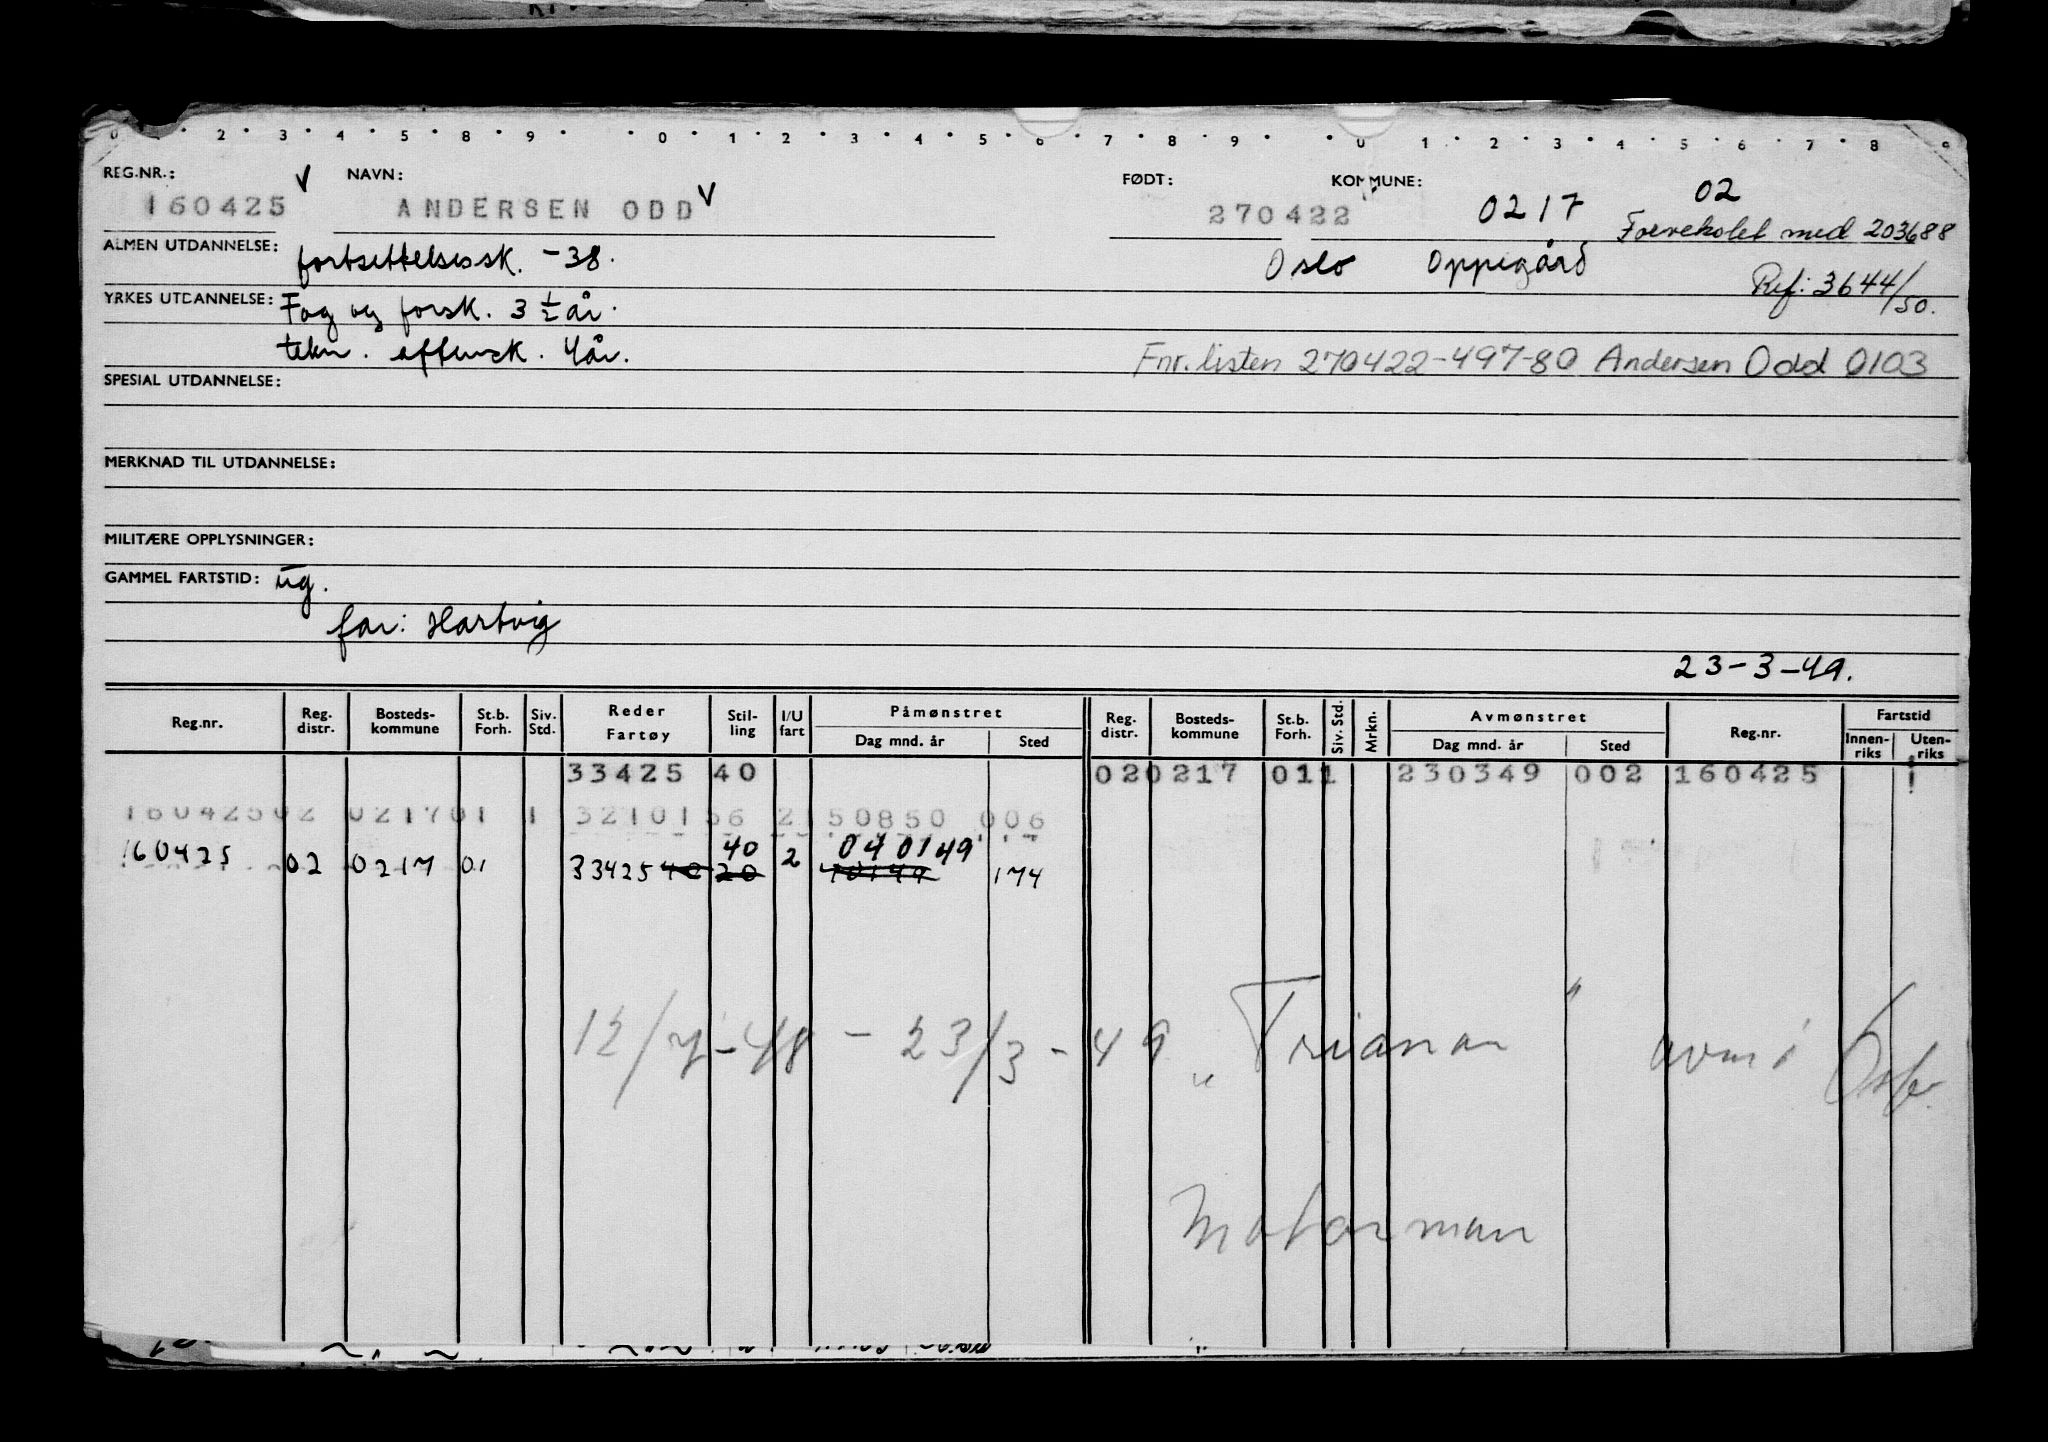 0 . 2 . 3 . 4 . 5 . 8 . 9 . . 0 . 1 . 2 . 3 . 4 . 5 . 6 . 7 . 8 . 9 . . 0 . 1 . 2 . 3 . 4 . 5 . 6 . 7 . 8 . 9
REG.NR.: V NAVN: FØDT: KOMMUNE: 02
160425 ANDERSEN ODD V 270422 0217 Forvekslet med 203688
ALMEN UTDANNELSE: fortsettelsessk. -38. Oslo Oppegård
YRKES UTDANNELSE: Fag og forsk. 3 ½ år. Ref: 3644/50.
tekn. aftensk. 4 år. Fnr. listen 270422-497-80 Andersen Odd 0103
SPESIAL UTDANNELSE:
MERKNAD TIL UTDANNELSE:
MILITÆRE OPPLYSNINGER:
GAMMEL FARTSTID: ug.
far: Hartvig
23-3-49.
Reg.nr. Reg. distr. Bosteds- kommune St.b. Forh. Siv. Std. Reder Fartøy Stil- ling I/U fart Påmønstret Dag mnd. år Sted Reg. distr. Bosteds- kommune St.b. Forh. Siv. Std. Mrkn. Avmønstret Dag mnd. år Sted Reg.nr. Fartstid Innen- riks Uten- riks
33425 40 020217 011 230349 002 160425
16042502 021701 1 3210156 2150850 006
40 040149
160425 02 0217 01 33425 40 20 2 70149 174
12/7-48 - 23/3-49 "Trianon" avm i Oslo.
Motorman